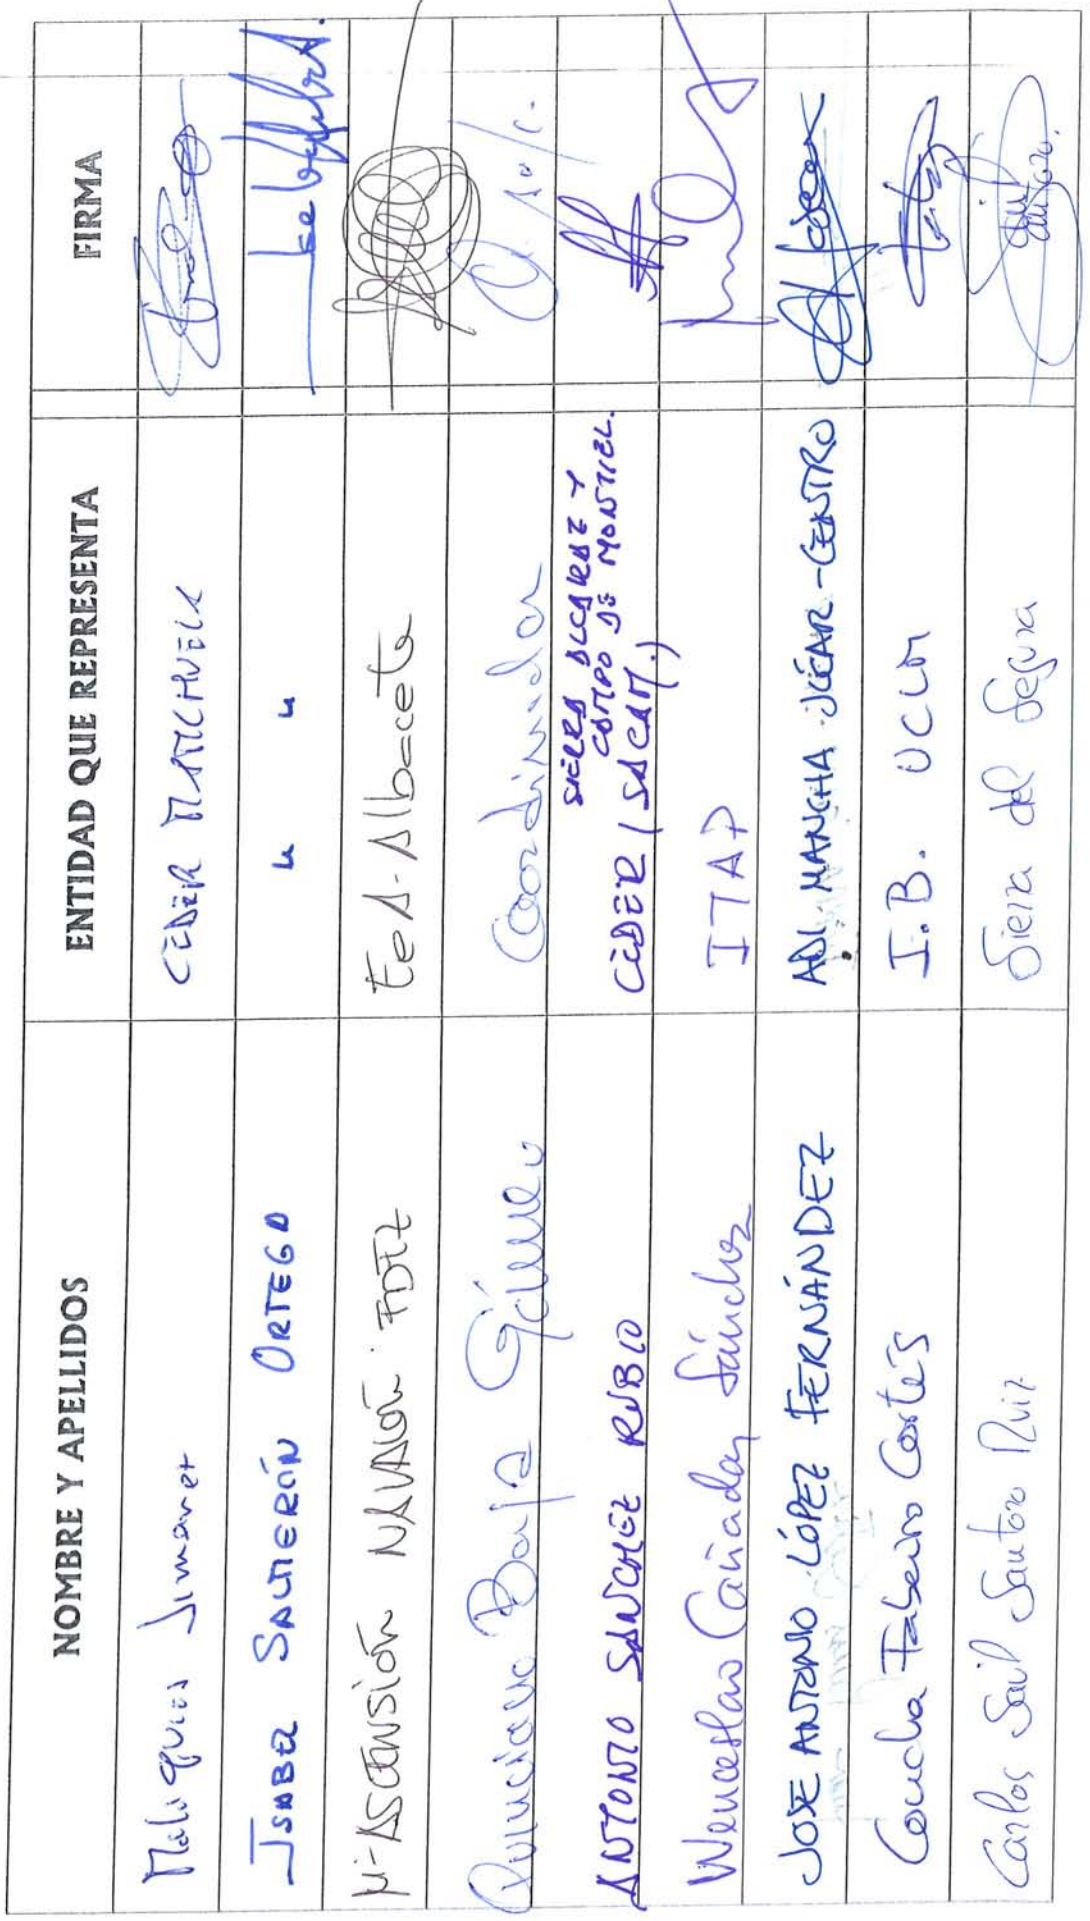 NOMBRE Y APELLIDOS ENTIDAD QUE REPRESENTA FIRMA
Malaquías Jimenez CEDER MANCHUELA
ISABEL SALMERÓN ORTEGA " "
Mª ASCENSIÓN NAVALÓN FDEZ FEDA-Albacete
Coordinador
ANTONIO SANCHEZ RUBIO CEDER (SACAM.) SIERRA ALCARAZ Y CAMPO DE MONTIEL.
Wenceslao Cañadas Sánchez ITAP
JOSE ANTONIO LÓPEZ FERNÁNDEZ ADI MANCHA JÚCAR-CENTRO
Concha Fabeiro Cortés I.B. UCLM
Carlos Saúl Santoro Ruiz Sierra del Segura